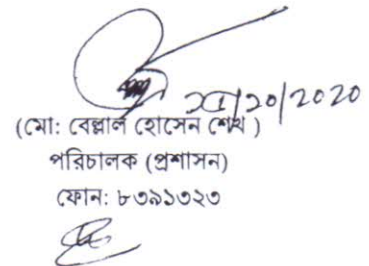 /১০/২০২০
(মো: বেল্লাল হোসেন শেখ )
পরিচালক (প্রশাসন)
ফোন: ৮৩৯১৩২৩